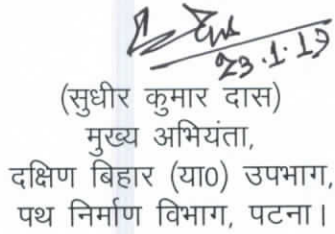 23.1.13
(सुधीर कुमार दास)
मुख्य अभियंता,
दक्षिण बिहार (या0) उपभाग,
पथ निर्माण विभाग, पटना।